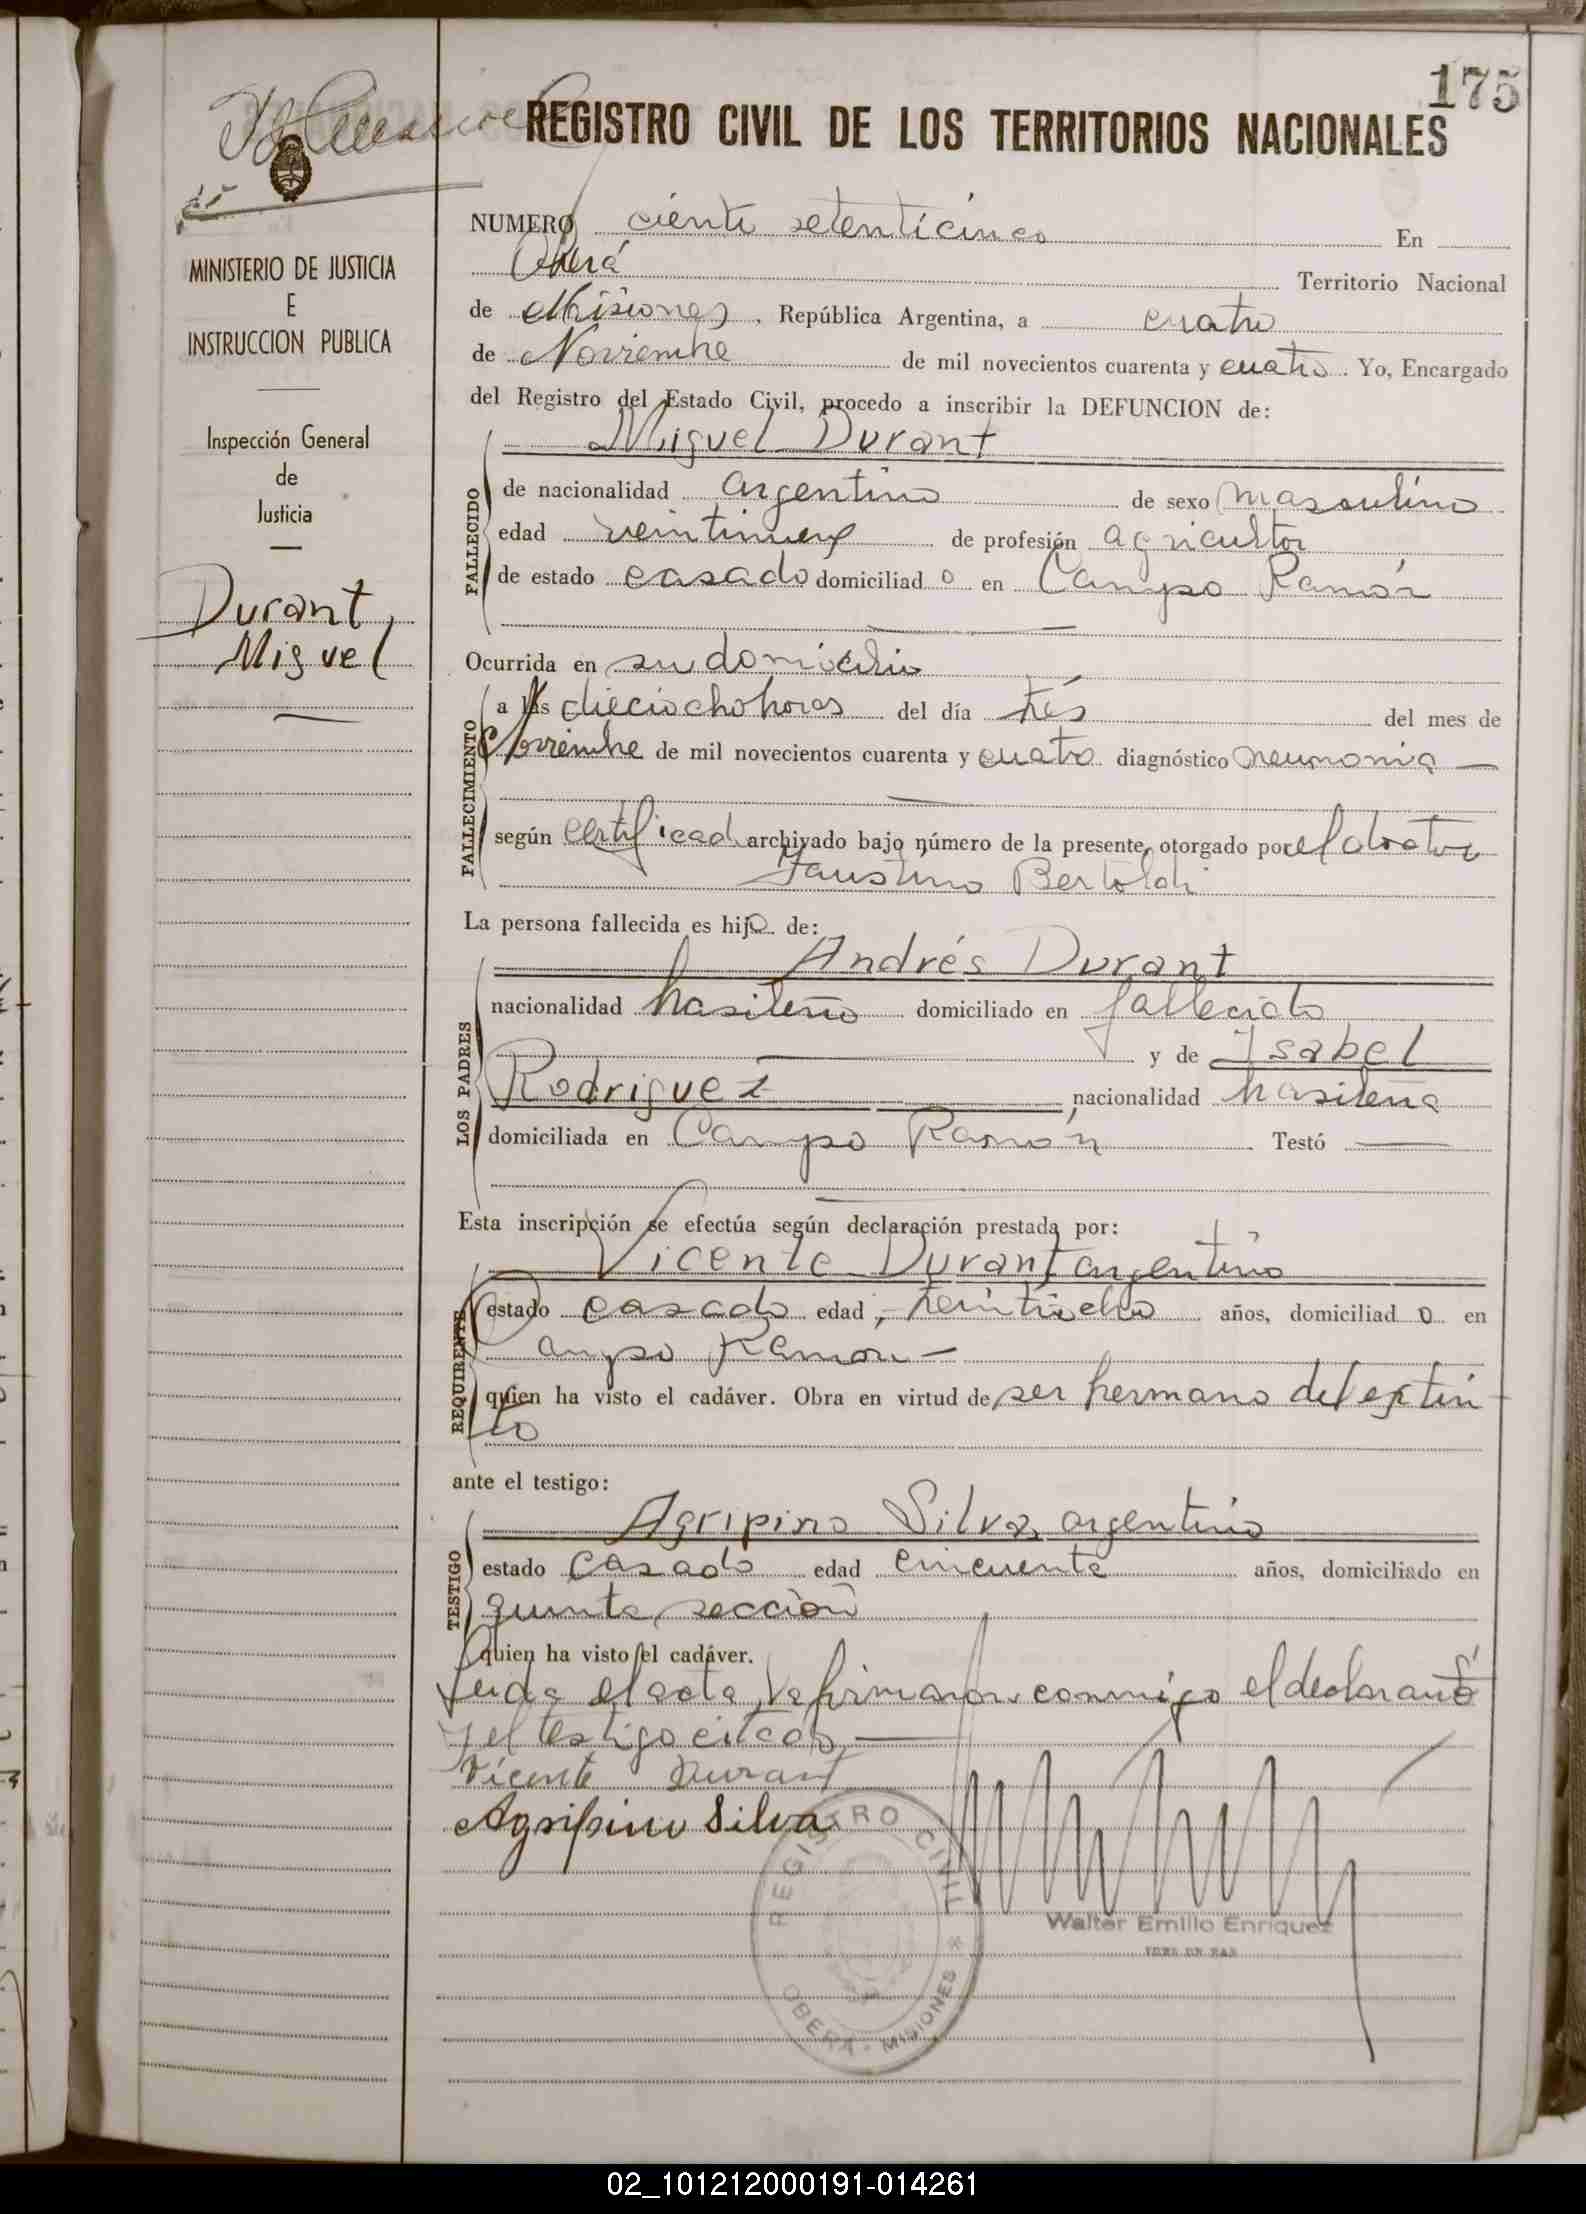 175
REGISTRO CIVIL DE LOS TERRITORIOS NACIONALES
MINISTERIO DE JUSTICIA
E
INSTRUCCION PUBLICA
Inspección General
de
Justicia
Durant,
Miguel
NUMERO ciento setenticinco En
Oberá Territorio Nacional
de Misiones, República Argentina, a cuatro
de Noviembre de mil novecientos cuarenta y cuatro. Yo, Encargado
del Registro del Estado Civil, procedo a inscribir la DEFUNCION de:
Miguel Durant
FALLECIDO
de nacionalidad argentino de sexo masculino
edad veintinueve de profesión agricultor
de estado casado domiciliado en Campo Ramón
Ocurrida en su domicilio
FALLECIMIENTO
a las dieciocho horas del día trés del mes de
Noviembre de mil novecientos cuarenta y cuatro diagnóstico neumonia —
según certificad archivado bajo número de la presente, otorgado por el doctor
Faustino Bertoldi
La persona fallecida es hijo de:
LOS PADRES
Andrés Durant
nacionalidad brasileño domiciliado en fallecido
y de Isabel
Rodriguez, nacionalidad brasileña
domiciliada en Campo Ramón Testó —
Esta inscripción se efectúa según declaración prestada por:
REQUIRENTE
Vicente Durant argentino
estado casado edad, treintiocho años, domiciliado en
Campo Ramon —
quien ha visto el cadáver. Obra en virtud de ser hermano del extin-
to
ante el testigo:
TESTIGO
Agripino Silva, argentino
estado casado edad cincuenta años, domiciliado en
quinta sección
quien ha visto el cadáver.
Leida el acta, la firmaron conmigo el declarante
y el testigo citado —
Vicente Durant
Agripino Silva
REGISTRO CIVIL
OBERA - MISIONES
Walter Emilio Enriquez
JUEZ DE PAZ
02_101212000191-014261